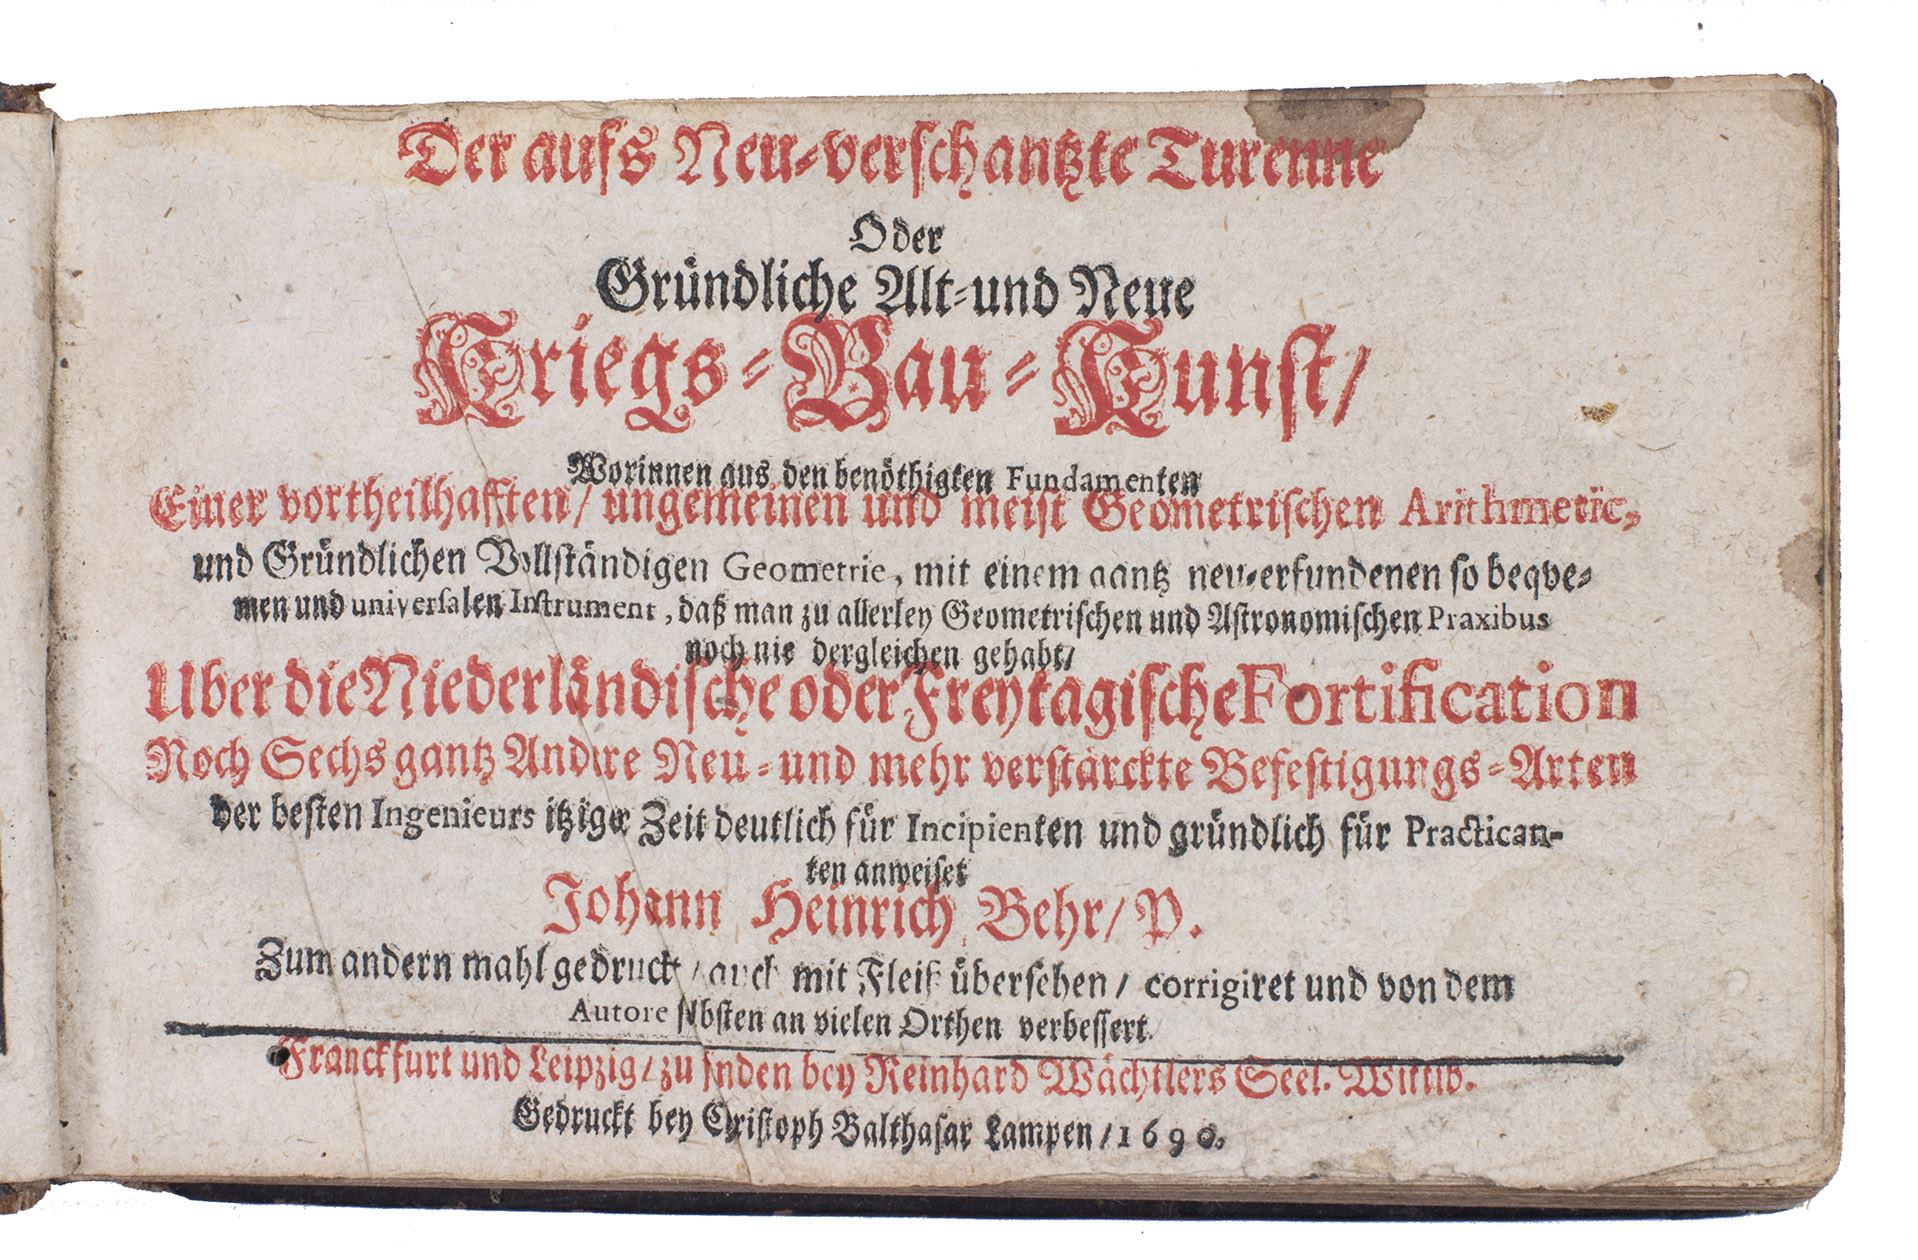 Der aufs Neu-verschantzte Turenne
Oder
Gründliche Alt-und Neue
Kriegs-Bau-Kunst/
Worinnen aus den benöthigten Fundamenten
Einer vortheilhafften/ ungemeinen und meist Geometrischen Arithmetic,
und Gründlichen Vollständigen Geometrie, mit einem gantz neu-erfundenen so beqve-
men und universalen Instrument, daß man zu allerley Geometrischen und Astronomischen Praxibus
noch nie dergleichen gehabt/
Uber die Niederländische oder Freytagische Fortification
Noch Sechs gantz Andere Neu- und mehr verstärckte Befestigungs-Arten
der besten Ingenieurs itziger Zeit deutlich für Incipienten und gründlich für Practican-
ten anweiset
Johann Heinrich Behr/ P.
Zum andern mahl gedruckt/ auch mit Fleiß übersehen/ corrigiret und von dem
Autore selbsten an vielen Orthen verbessert.
Franckfurt und Leipzig/ zu finden bey Reinhard Wächtlers Seel. Wittib.
Gedruckt bey Christoph Balthasar Lampen/ 1690.